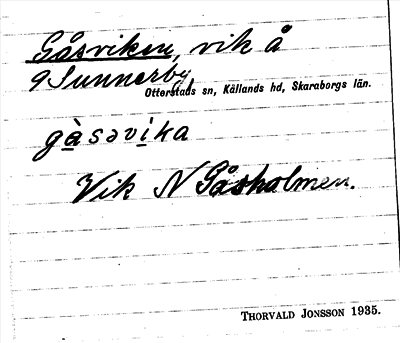 Gåsviken, vik å
9 Sunnerby,
Otterstads sn, Kållands hd, Skaraborgs län.
gàsəvika
Vik N Gåsholmen.
THORVALD JONSSON 1935.